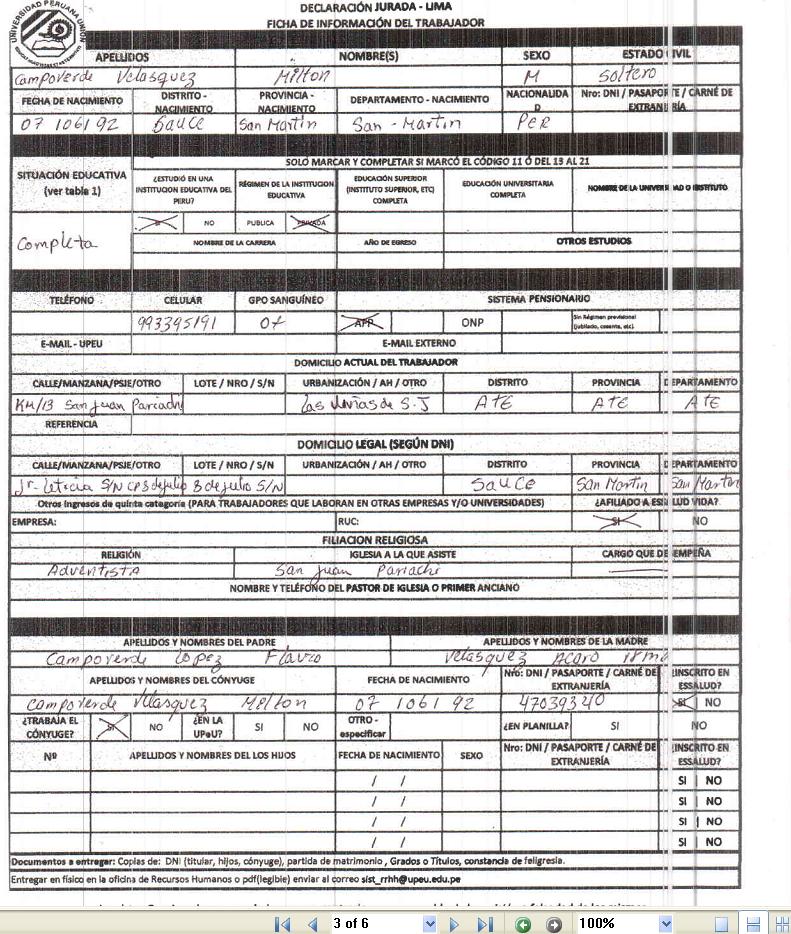 UNIVERSIDAD PERUANA UNION
DECLARACIÓN JURADA - LIMA
FICHA DE INFORMACIÓN DEL TRABAJADOR
APELLIDOS NOMBRE(S) SEXO ESTADO CIVIL
Campoverde Velasquez Milton M Soltero
FECHA DE NACIMIENTO DISTRITO - NACIMIENTO PROVINCIA - NACIMIENTO DEPARTAMENTO - NACIMIENTO NACIONALIDAD Nro: DNI / PASAPORTE / CARNÉ DE EXTRANJERÍA
07 / 06 / 92 Sauce San Martin San - Martin Per
SOLO MARCAR Y COMPLETAR SI MARCÓ EL CÓDIGO 11 Ó DEL 13 AL 21
SITUACIÓN EDUCATIVA (ver tabla 1) ¿ESTUDIÓ EN UNA INSTITUCION EDUCATIVA DEL PERU? RÉGIMEN DE LA INSTITUCION EDUCATIVA EDUCACIÓN SUPERIOR (INSTITUTO SUPERIOR, ETC) COMPLETA EDUCACIÓN UNIVERSITARIA COMPLETA NOMBRE DE LA UNIVERSIDAD O INSTITUTO
SI NO PUBLICA PRIVADA
Completa
NOMBRE DE LA CARRERA AÑO DE EGRESO OTROS ESTUDIOS
TELÉFONO CELULAR GPO SANGUÍNEO SISTEMA PENSIONARIO
993395191 O+ AFP ONP Sin Régimen previsional (jubilado, cesante, etc)
E-MAIL - UPEU E-MAIL EXTERNO
DOMICILIO ACTUAL DEL TRABAJADOR
CALLE/MANZANA/PSJE/OTRO LOTE / NRO / S/N URBANIZACIÓN / AH / OTRO DISTRITO PROVINCIA DEPARTAMENTO
Km/13 San Juan Pariachi Las Viñas de S.J ATE ATE ATE
REFERENCIA
DOMICILIO LEGAL (SEGÚN DNI)
CALLE/MANZANA/PSJE/OTRO LOTE / NRO / S/N URBANIZACIÓN / AH / OTRO DISTRITO PROVINCIA DEPARTAMENTO
Jr- Leticia S/N CP 3 de julio 3 de julio S/N Sauce San Martin San Martin
Otros ingresos de quinta categoria (PARA TRABAJADORES QUE LABORAN EN OTRAS EMPRESAS Y/O UNIVERSIDADES) ¿AFILIADO A ESSALUD VIDA?
EMPRESA: RUC: SI NO
FILIACION RELIGIOSA
RELIGIÓN IGLESIA A LA QUE ASISTE CARGO QUE DESEMPEÑA
Adventista San Juan Pariachi
NOMBRE Y TELÉFONO DEL PASTOR DE IGLESIA O PRIMER ANCIANO
APELLIDOS Y NOMBRES DEL PADRE APELLIDOS Y NOMBRES DE LA MADRE
Campoverde Lopez Flavio Velasquez Acaro Irma
APELLIDOS Y NOMBRES DEL CÓNYUGE FECHA DE NACIMIENTO Nro: DNI / PASAPORTE / CARNÉ DE EXTRANJERÍA ¿INSCRITO EN ESSALUD?
Campoverde Velasquez Milton 07 / 06 / 92 47039340 SI NO
¿TRABAJA EL CÓNYUGE? SI NO ¿EN LA UPeU? SI NO OTRO - especificar ¿EN PLANILLA? SI NO
Nº APELLIDOS Y NOMBRES DE LOS HIJOS FECHA DE NACIMIENTO SEXO Nro: DNI / PASAPORTE / CARNÉ DE EXTRANJERÍA ¿INSCRITO EN ESSALUD?
/ / SI NO
/ / SI NO
/ / SI NO
/ / SI NO
Documentos a entregar: Copias de: DNI (titular, hijos, cónyuge), partida de matrimonio , Grados o Títulos, constancia de feligresia.
Entregar en físico en la oficina de Recursos Humanos o pdf(legible) enviar al correo sist_rrhh@upeu.edu.pe
3 of 6 100%